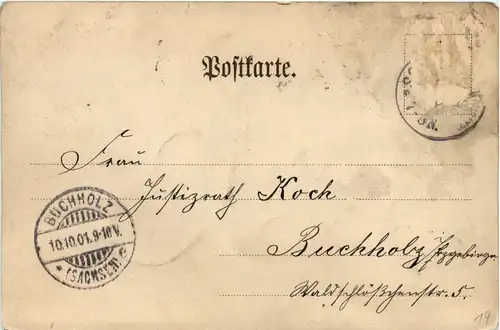 Postkarte.
Frau
Justizrath Koch
Buchholz, Erzgebirge
Waldschlößchenstr. 5.
BUCHHOLZ
10.10.01.9-10V.
* (SACHSEN) *
19